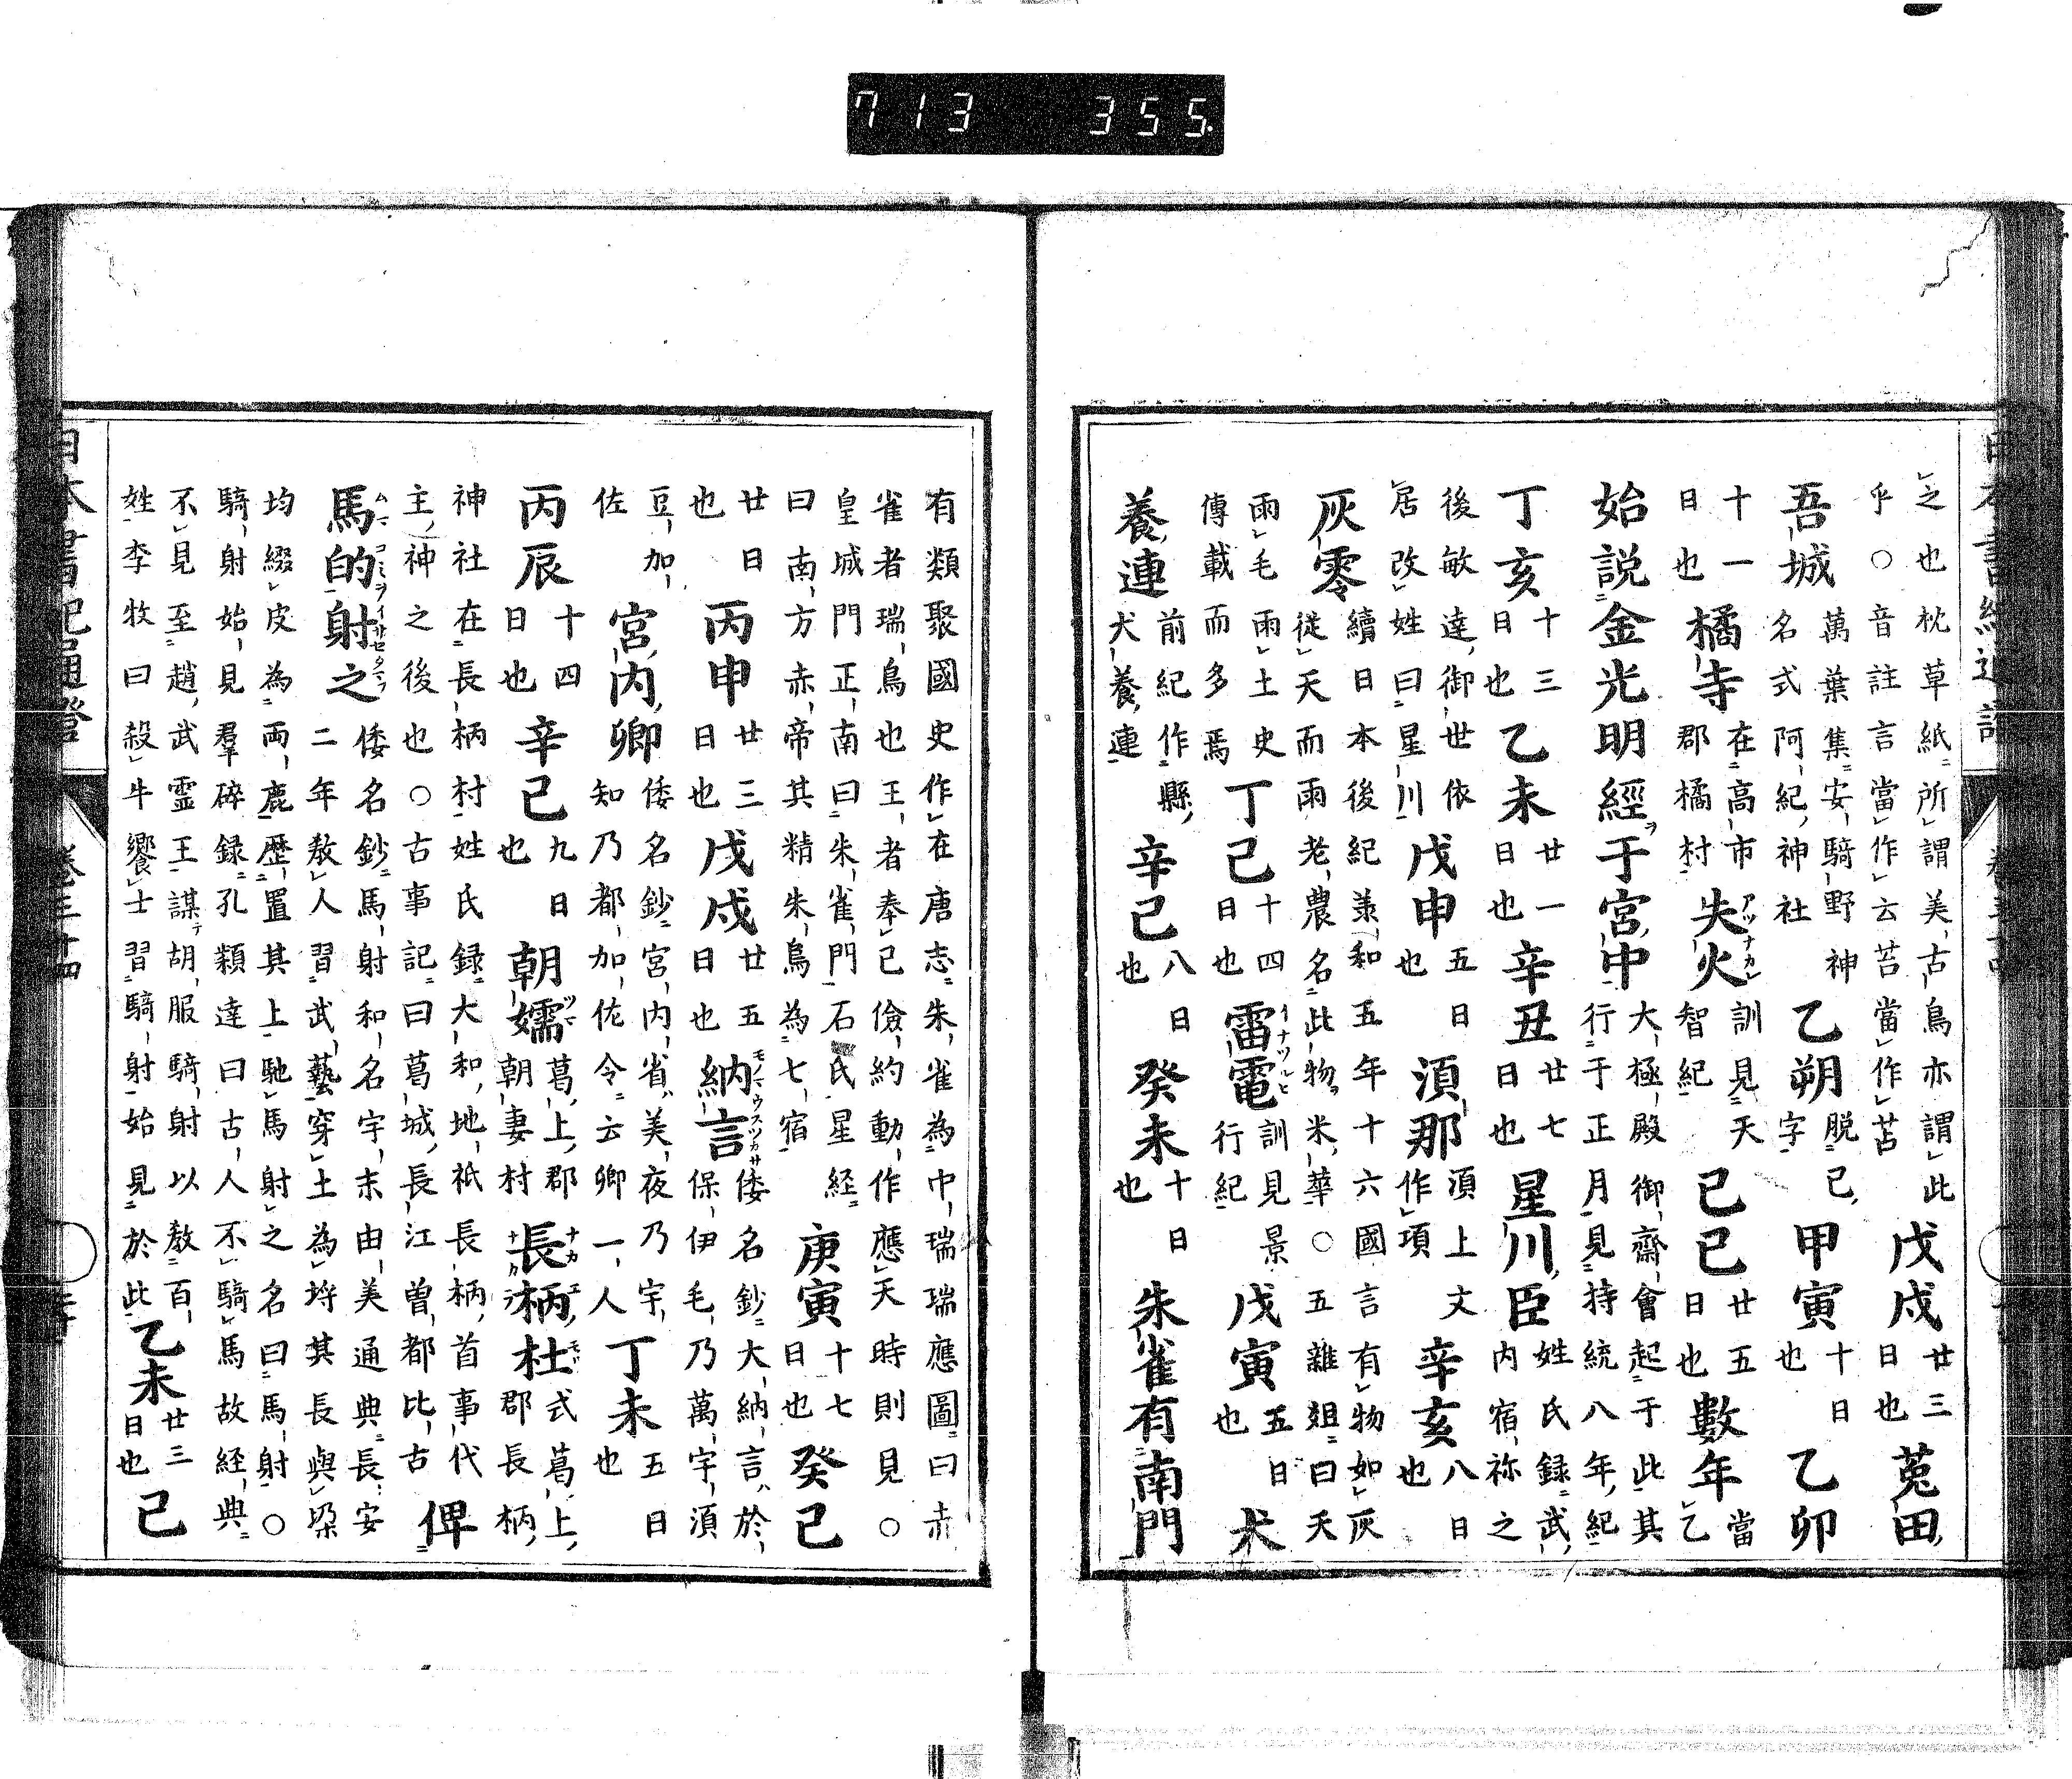 之也枕草紙所謂美古鳥亦謂此
乎○音註言當作云苔當作苫
戊戌 廿三日也 菟田
吾城 萬葉集安騎野神名式阿紀神社 乙朔 脱巳字 甲寅 十日也 乙卯
十一日也 橘寺 在高市郡橘村 失火 訓見天智紀 己巳 廿五日也 數年 當乙
始説金光明經于宮中 大極殿御齋會起于此其行于正月見持統八年紀
丁亥 十三日也 乙未 廿一日也 辛丑 廿七日也 星川臣 姓氏録武内宿祢之
後敏達御世依居改姓曰星川 戊申 五日也 湏那 湏上文作項 辛亥 八日也
灰零 續日本後紀羕和五年十六國言有物如灰從天而雨老農名此物米華○五雜俎曰天
雨毛雨土史傳載而多焉 丁巳 十四日也 雷電 訓見景行紀 戊寅 五日也 犬
養連 前紀作縣犬養連 辛巳 八日也 癸未 十日也 朱雀有南門
有類聚國史作在唐志朱雀為中瑞瑞應圖曰赤
雀者瑞鳥也王者奉己儉約動作應天時則見○
皇城門正南曰朱雀門石氏星経曰南方赤帝其精朱鳥為七宿 庚寅 十七日也 癸巳
廿日也 丙申 廿三日也 戊戌 廿五日也 納言 倭名鈔大納言於保伊毛乃萬宇湏
豆加佐 宮内卿 倭名鈔宮内省美夜乃宇知乃都加佐令云卿一人 丁未 五日也
丙辰 十四日也 辛巳 九日也 朝嬬 葛上郡朝妻村 長柄杜 式葛上郡長柄
神社在長柄村姓氏録大和地祇長柄首事代主神之後也○古事記曰葛城長江曽都比古 俾
馬的射之 倭名鈔馬射和名宇末由美通典長安二年教人習武藝穿土為埒其長與垜
均綴皮為両鹿歴置其上馳馬射之名曰馬射○
騎射始見羣碎録孔穎達曰古人不騎馬故経典
不見至趙武霊王謀胡服騎射以教百姓李牧曰殺牛饗士習騎射始見於此 乙未 廿三日也 己
日本書紀通證 卷三十四
713 355